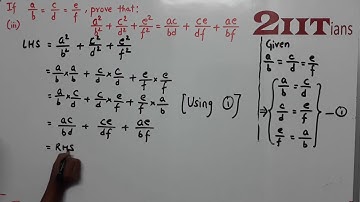 If a/b = c/d = e/f, prove that:
(iii) a²/b² + c²/d² + e²/f² = ac/bd + ce/df + ae/bf
2IITians
LHS = a²/b² + c²/d² + e²/f²
= a/b × a/b + c/d × c/d + e/f × e/f
= a/b × c/d + c/d × e/f + e/f × a/b [Using ①]
= ac/bd + ce/df + ae/bf
= RHS
Given
a/b = c/d = e/f
⇒ { a/b = c/d
c/d = e/f
e/f = a/b } — ①